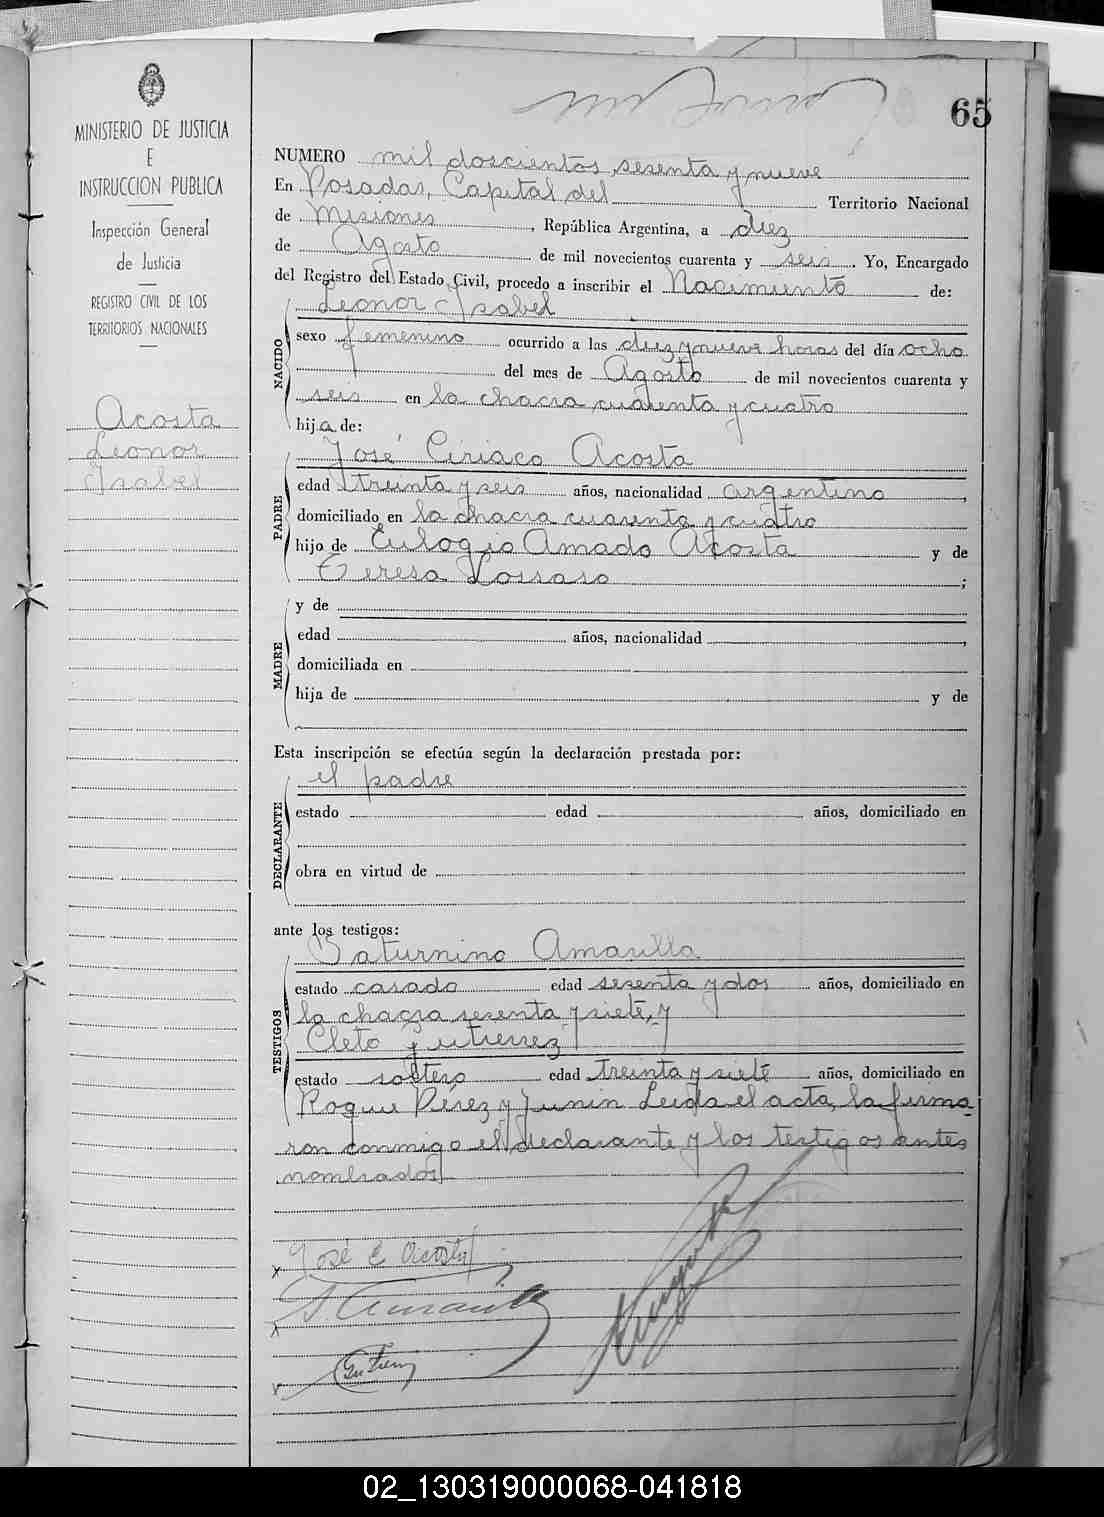 65
MINISTERIO DE JUSTICIA
E
INSTRUCCION PUBLICA
Inspección General
de Justicia
REGISTRO CIVIL DE LOS
TERRITORIOS NACIONALES
Acosta
Leonor
Isabel
NUMERO mil doscientos sesenta y nueve
En Posadas, Capital del Territorio Nacional
de Misiones, República Argentina, a diez
de Agosto de mil novecientos cuarenta y seis. Yo, Encargado
del Registro del Estado Civil, procedo a inscribir el Nacimiento de:
NACIDO
Leonor Isabel
sexo femenino ocurrido a las diez y nueve horas del día ocho
del mes de Agosto de mil novecientos cuarenta y
seis en la chacra cuarenta y cuatro
hija de:
PADRE
José Ciriaco Acosta
edad treinta y seis años, nacionalidad argentino,
domiciliado en la chacra cuarenta y cuatro
hijo de Eulogio Amado Acosta y de
Teresa ;
MADRE
y de
edad años, nacionalidad ,
domiciliada en
hija de y de
Esta inscripción se efectúa según la declaración prestada por:
DECLARANTE
el padre
estado edad años, domiciliado en
obra en virtud de
ante los testigos:
TESTIGOS
Saturnino Amarilla
estado casado edad sesenta y dos años, domiciliado en
la chacra sesenta y siete, y
Cleto Gutierrez
estado soltero edad treinta y siete años, domiciliado en
Roque Pérez y Junin Leida el acta, la firma-
ron conmigo el declarante y los testigos antes
nombrados
José C Acosta
S. Amarilla
02_130319000068-041818